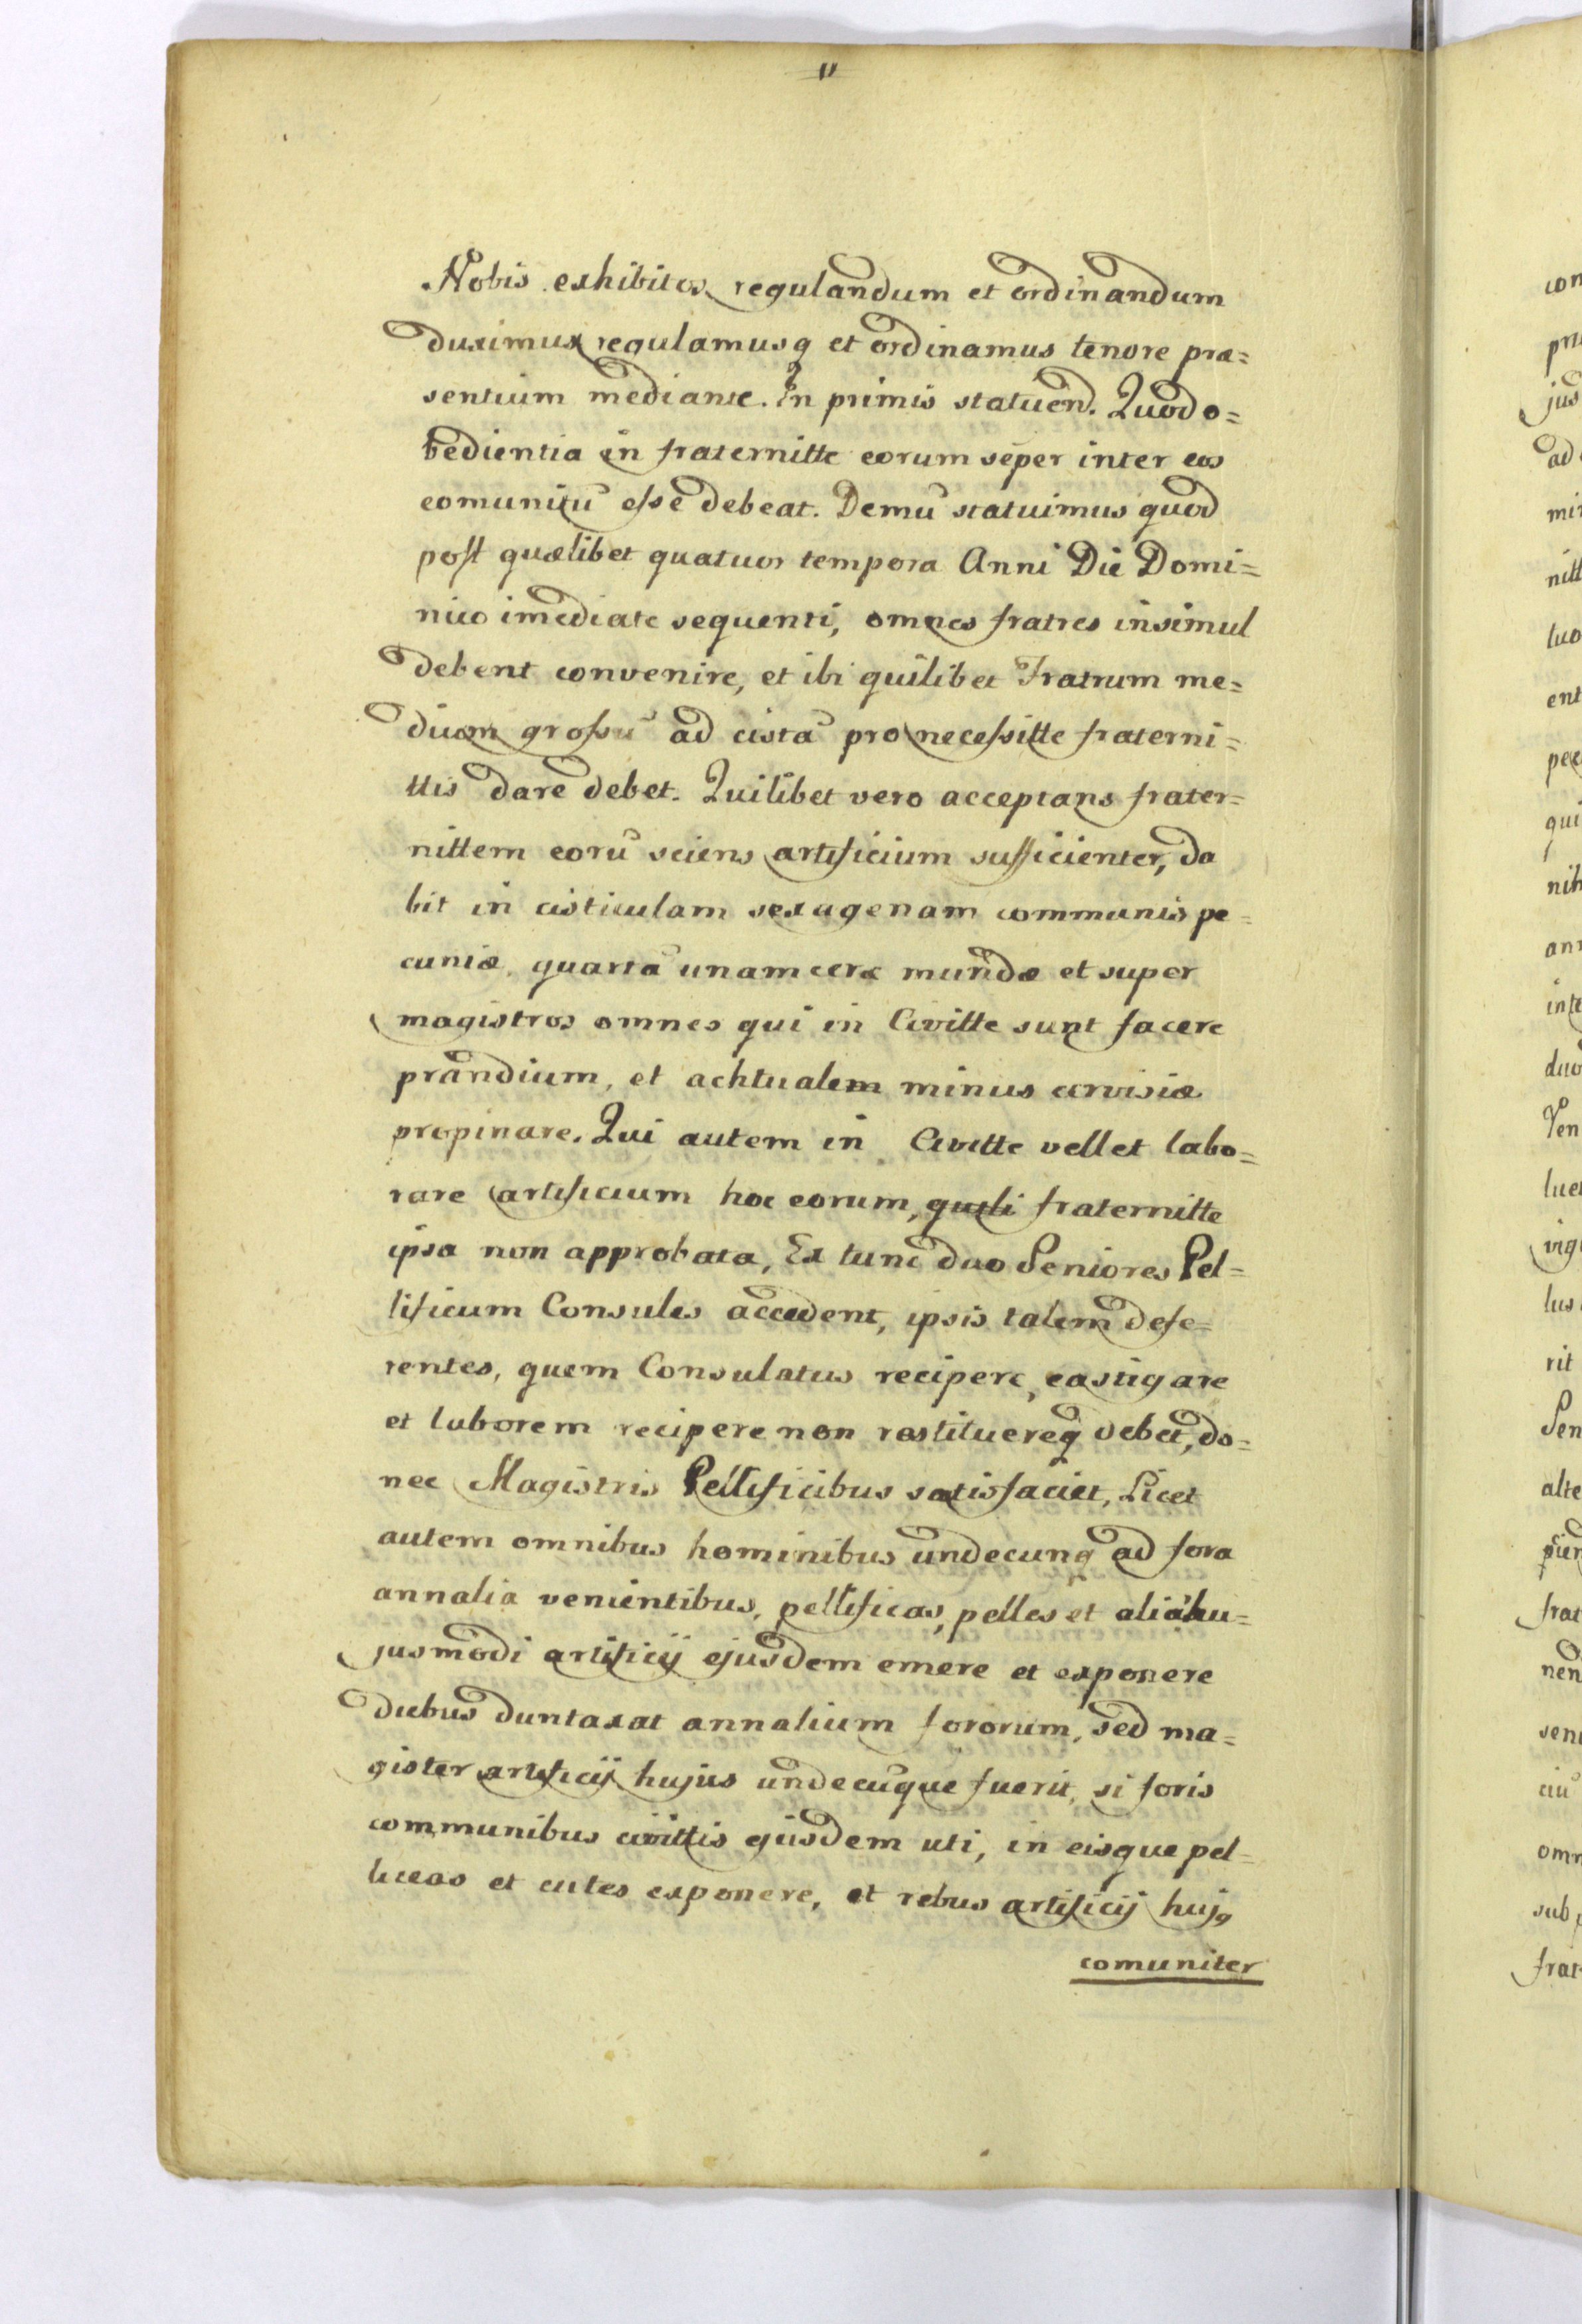 Nobis exhibitos regulandum et ordinandum
duximus regulamusq et ordinamus tenore præ=
sentium mediante. In primis statuend. Quod o=
bedientia in fraternitte eorum sēper inter eos
comunitū esse debeat. Demū statuimus quod
post quælibet quatuor tempora Anni Die Domi=
nico imediate sequenti, omnes fratres insimul
debent convenire, et ibi quilibet Fratrum me=
dium grossū ad cistā pro necessitte fraterni=
ttis dare debet. Quilibet vero acceptans frater=
nittem eorū sciens artificium sufficienter, da
bit in cisticulam sexagenam communis pe=
cuniæ, quartā unam ceræ mundæ et super
magistros omnes qui in Civitte sunt facere
prandium, et achtualem minus cervisiæ
propinare. Qui autem in Civitte vellet labo=
rare artificium hoc eorum, quali fraternitte
ipsa non approbata, Ex tunc duo Seniores Pel=
lificum Consules accedent, ipsis talem defe=
rentes, quem Consulatus recipere, castigare
et laborem recipere non restituereq debet, do=
nec Magistris Pellificibus satisfaciet, Licet
autem omnibus hominibus undecunq ad fora
annalia venientibus, pellificas, pelles et alia hu=
jusmodi artificij ejusdem emere et exponere
diebus duntaxat annalium fororum, sed ma=
gister artificij hujus undecūque fuerit, si foris
communibus civittis ejusdem uti, in eisque pel=
liceas et cutes exponere, et rebus artificij huj9
comuniter
con
pri
jus
ad
mi
nitt
luo
ent
pec
qui
nih
ann
inte
duo
Ven
lue
vig
lus
rit
Sen
alte
frat
nen
seni
ciū
omn
sub
frat